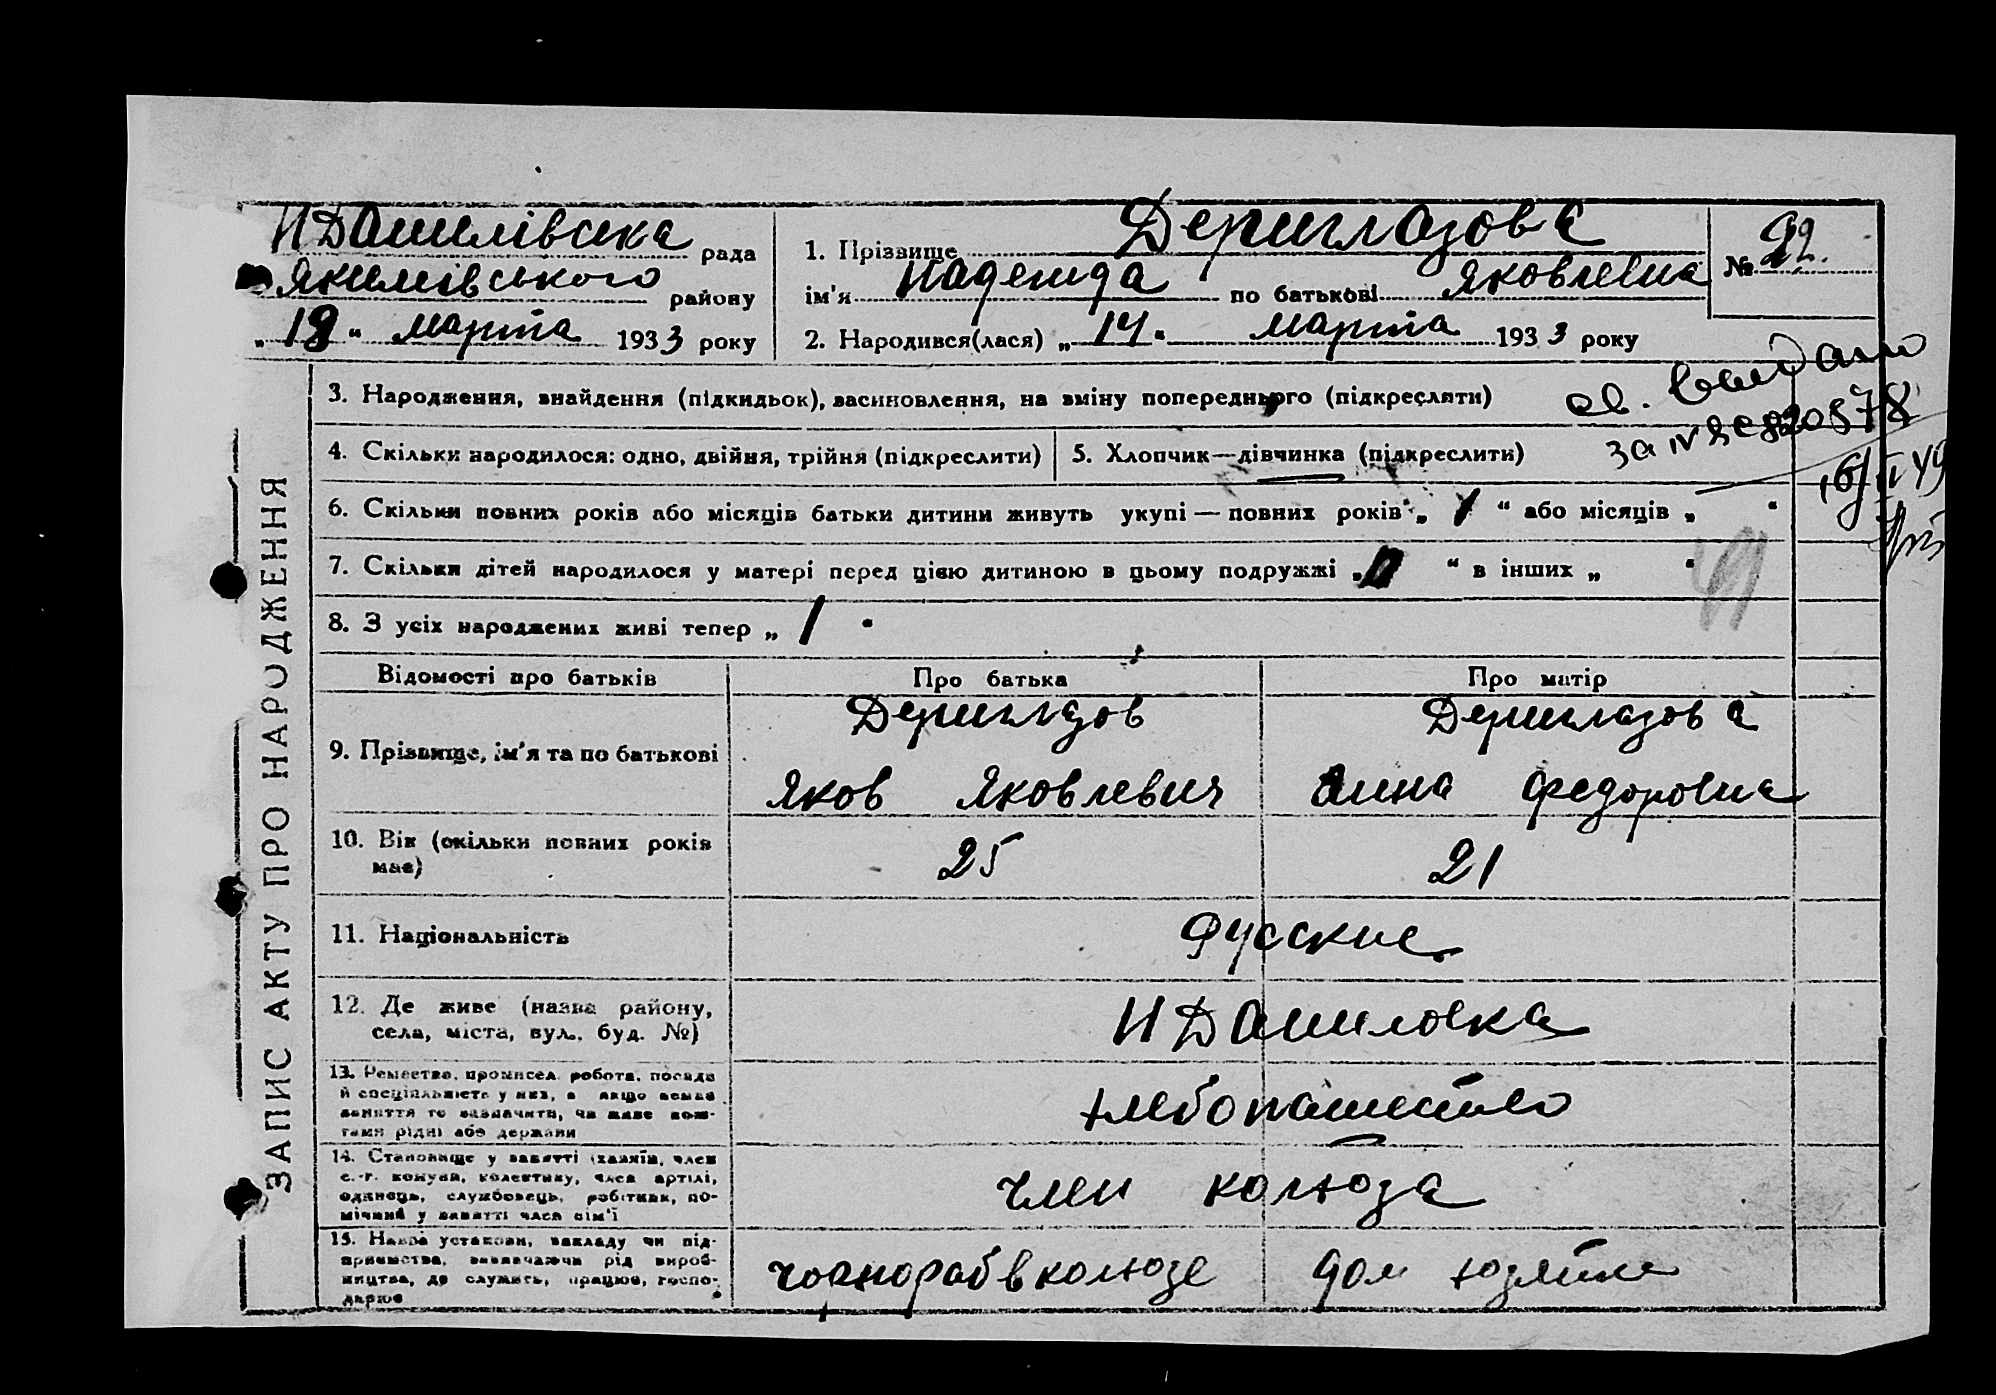 И Данилівска рада
Якимівського району
„19“ марта 1933 року
1. Прізвище Дериглазова
ім'я Надежда по батькові Яковлевна
№ 22.
2. Народився(лася) „14“ марта 1933 року
3. Народження, знайдення (підкидьок), засиновлення, на зміну попереднього (підкреслити)
св. выдано
4. Скільки народилося: одно, двійня, трійня (підкреслити)
5. Хлопчик—дівчинка (підкреслити)
за №
6. Скільки повних років або місяців батьки дитини живуть укупі — повних років „1“ або місяців „ “
7. Скільки дітей народилося у матері перед цією дитиною в цьому подружжі „ “ в інших „ “
8. З усіх народжених живі тепер „1“
ЗАПИС АКТУ ПРО НАРОДЖЕННЯ
Відомості про батьків
Про батька
Про матір
9. Прізвище, ім'я та по батькові
Дериглазов
Яков Яковлевич
Дериглазова
Анна Федоровна
10. Вік (скільки повних років
має)
25
21
11. Національність
Русские
12. Де живе (назва району,
села, міста, вул. буд. №)
И Даниловка
13. Ремество, промисел, робота, посада
й спеціальність у них, а якщо немає
заняття то зазначити, чи живе кош-
тами рідні або держави
хлебопашество
14. Становище у занятті (хазяїн, член
с.-г. комуни, колективу, член артілі,
одинець, службовець, робітник, по-
мічний у занятті член сім'ї
член колхоза
15. Назва установи, закладу чи під-
приємства, зазначаючи рід вироб-
ництва, де служить, працює, госпо-
дарює
чорнораб в колхозе
дом хозяйка